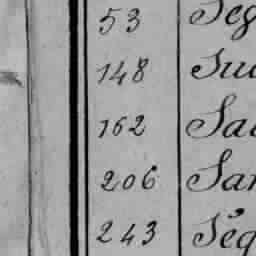 53 Seg
148 Sua
162 Sa
206 San
243 Ség